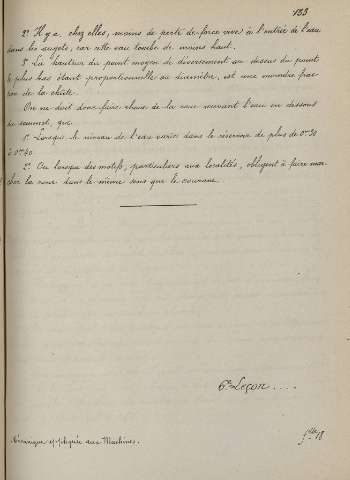 133
2° Il y a, chez elles, moins de perte de force vive, à l'entrée de l'eau
dans les augets, car cette eau tombe de moins haut.
3° La hauteur du point moyen de déversement au dessus du point
le plus bas étant proportionnelle au diamètre, est une moindre frac
tion de la chûte.
On ne doit donc faire choix de la roue recevant l'eau en dessous
du sommet, que
1° Lorsque le niveau de l'eau varie dans le réservoir de plus de 0m30
à 0m40.
2° Ou lorsque des motifs, particuliers aux localités, obligent à faire mar
cher la roue dans le même sens que le courant.
6e Leçon....
Mécanique appliquée aux Machines.
flle 18